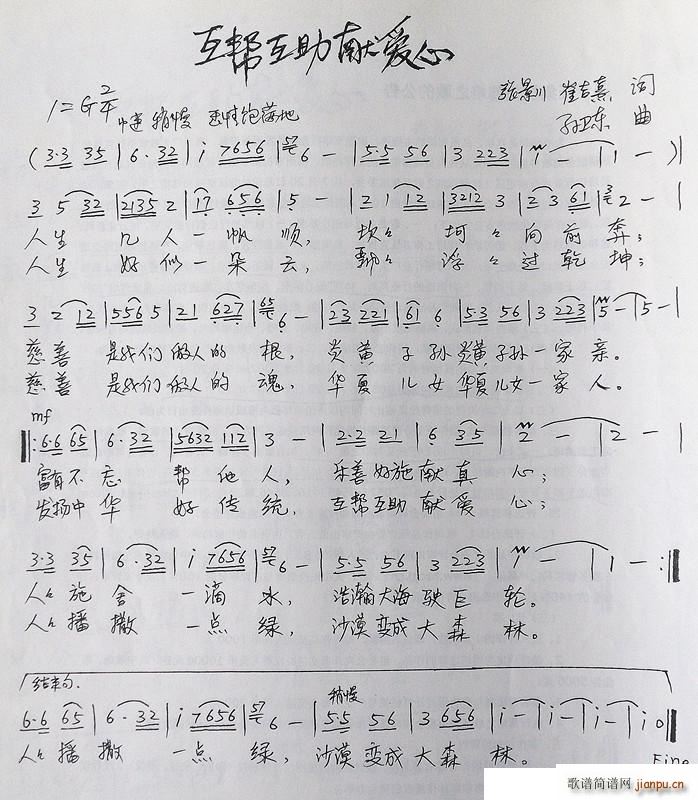 互帮互助献爱心
1=G 2/4 中速 稍慢 至性饱满地
张景川 崔吉熹 词
孙卫东 曲
(3·3 35 | 6·32 | i 7656 | 57 6 — | 5·5 56 | 3 223 | 1 — | 1 — ) |
3 5 32 | 2135 2 | 17 656 | 5 — | 2 1 12 | 3212 3 | 2 3 61 | 3 2 — |
人生 几人 帆顺, 坎々 坷々 向前奔;
人生 好似一朵云, 飘々 浮々 过乾坤;
3 2 12 | 556 5 | 21 627 | 65 6 — | 23 221 | 61 6 | 5·3 56 | 3 223 | 5 — | 5 — |
慈善 是我们做人的 根, 炎黄 子孙炎黄子孙一家 亲。
慈善 是我们做人的 魂, 华夏 儿女华夏儿女一家 人。
mf
|: 6·6 65 | 6·32 | 5632 112 | 3 — | 2·2 21 | 6 35 | 2 — | 2 — |
富有不忘 帮他人, 乐善好施献真 心;
发扬中华 好传统, 互帮互助献爱 心;
3·3 35 | 6·32 | i 7656 | 57 6 — | 5·5 56 | 3 223 | 1 — | 1 — :|
人々施舍 一滴水, 浩瀚大海驶巨 轮。
人々播撒 一点绿, 沙漠变成大森 林。
结束句.
稍慢
6·6 65 | 6·32 | i 7656 | 57 6 — | 5·5 56 | 3 656 | i — | i — | i — | i 0 |
人々播撒 一点绿, 沙漠变成大森 林。
Fine
歌谱简谱网
jianpu.cn